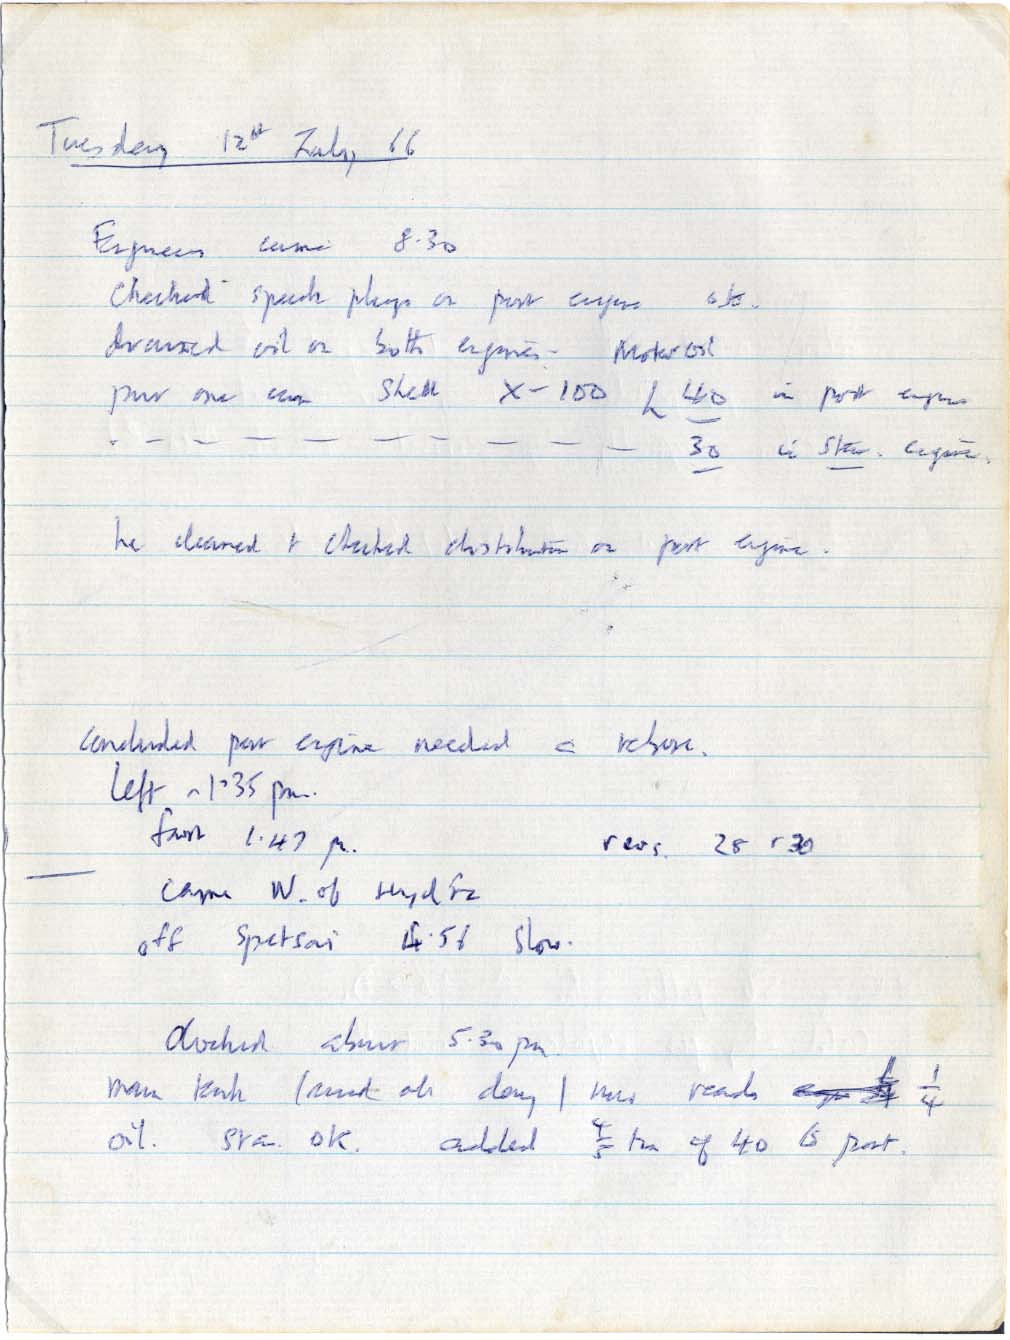 Tuesday 12th July, 66
Engineers came 8.30
Checked spark plugs on port engine ok.
drained oil on both engines - Motor oil
put one can Shell X-100 40 in port engine
. — — — — — — — — — 30 in Star. engine.
he cleaned + checked distributor on port engine.
Concluded port engine needed a rebore.
left ~ 1.35 pm.
fast 1.47 p. revs. 28 + 30
came W. of Hydra
off Spetsai 4.56 slow.
docked about 5.30 pm.
main tank (used all day) now reads 1/4
oil. Star. OK. added 4/5 tin of 40 to port.